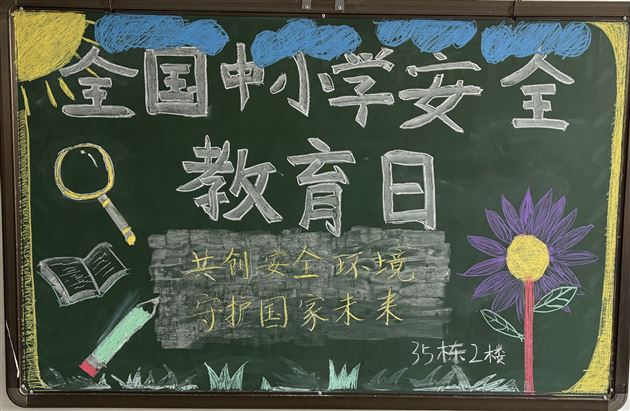 全国中小学安全
教育日
共创安全环境
守护国家未来
35栋2楼